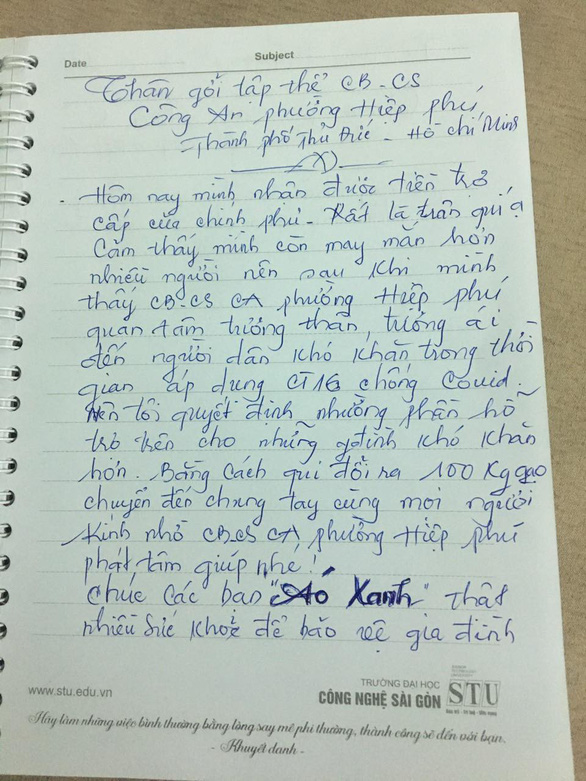 Date
Subject
Thân gởi tập thể CB-CS
Công An phường Hiệp phú,
Thành phố Thủ Đức - Hồ Chí Minh
- Hôm nay mình nhận được tiền trợ
cấp của chính phủ. Rất là trân quí.
Cảm thấy mình còn may mắn hơn
nhiều người nên sau khi mình
thấy CB-CS CA phường Hiệp phú
quan tâm tương thân, tương ái
đến người dân khó khăn trong thời
gian áp dụng CT16 chống Covid.
Nên tôi quyết định nhường phần hỗ
trợ trên cho những gđình khó khăn
hơn. Bằng cách qui đổi ra 100 Kg gạo
chuyển đến chung tay cùng mọi người
Kính nhờ CB-CS CA phường Hiệp phú
phát tâm giúp nhé!
Chúc các bạn "Áo Xanh" thật
nhiều sức khoẻ để bảo vệ gia đình
www.stu.edu.vn
TRƯỜNG ĐẠI HỌC
CÔNG NGHỆ SÀI GÒN
STU
Hãy làm những việc bình thường bằng lòng say mê phi thường, thành công sẽ đến với bạn.
- Khuyết danh -